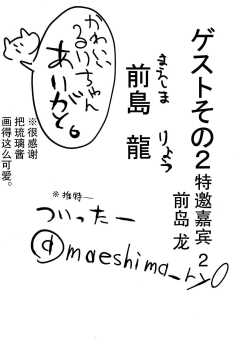 ゲストその2
特邀嘉宾2
前岛 龙
まえしま りょう
前島 龍
かわいい
るりちゃん
ありがと。
※很感谢
把琉璃酱
画得这么可爱。
※推特一
ついったー
@maeshima_ryo